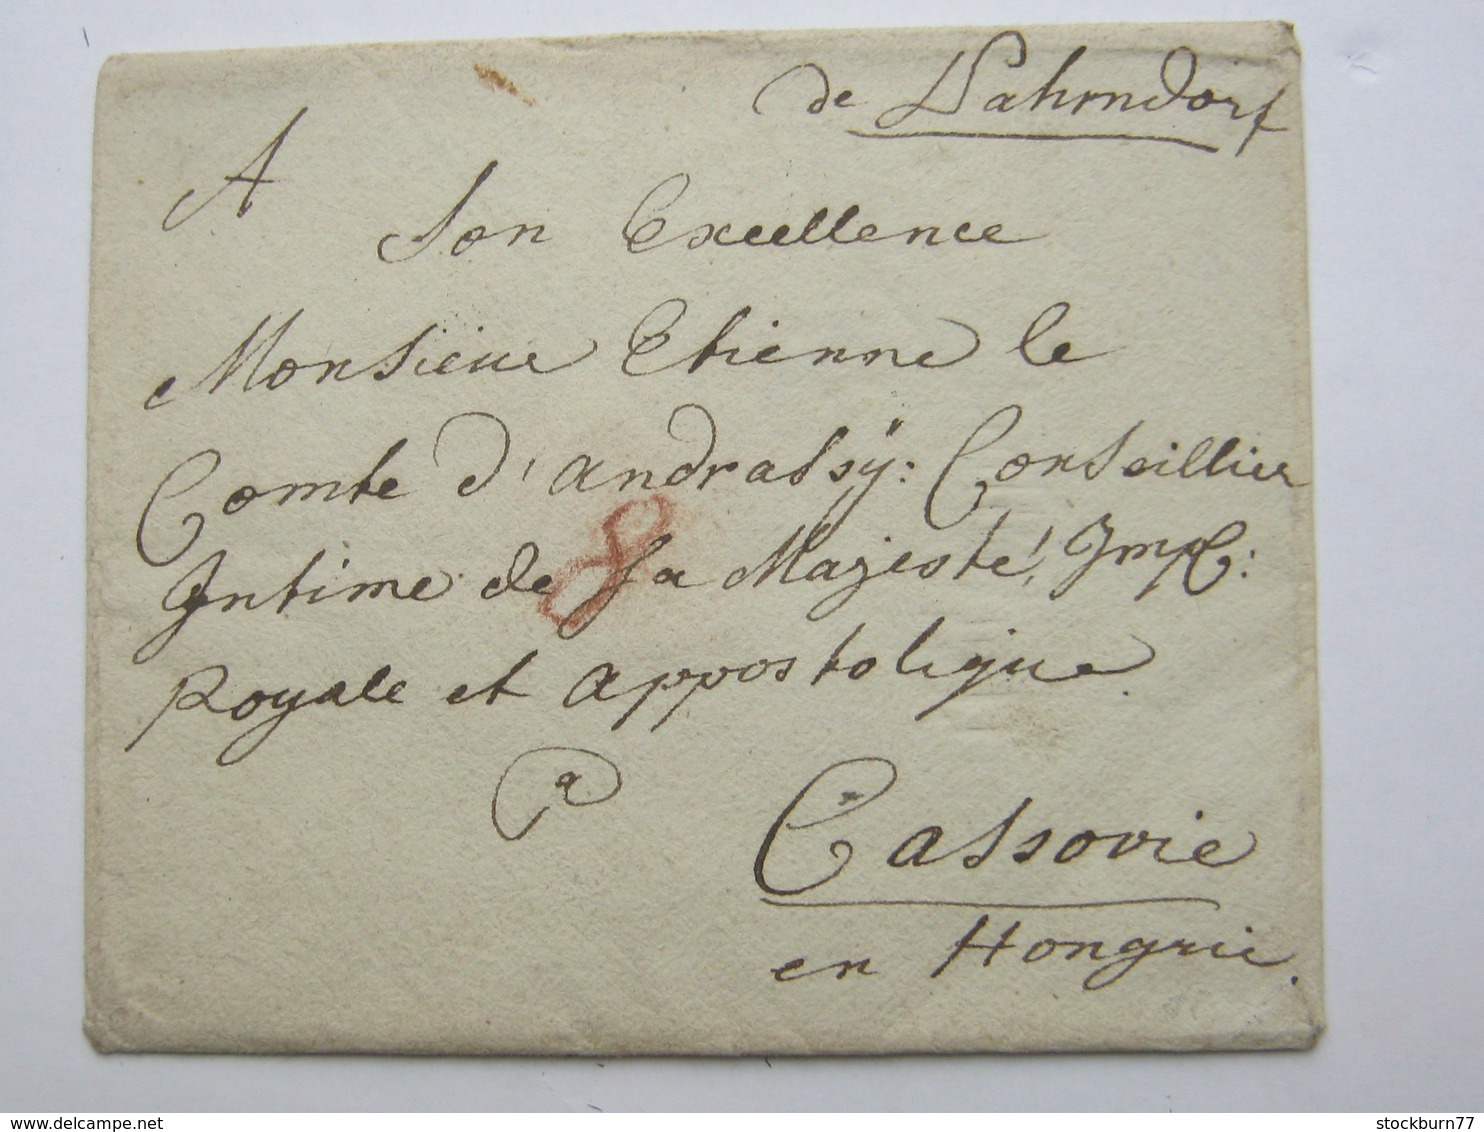 de Wahrndorf
A
Son Excellence
Monsieur Etienne le
Comte d'Andrassÿ: Conseillier
Intime de Sa Majesté, Imp:
Royale et Appostolique
a
Cassovie
en Hongrie.
8
delcampe.net
stockburn77